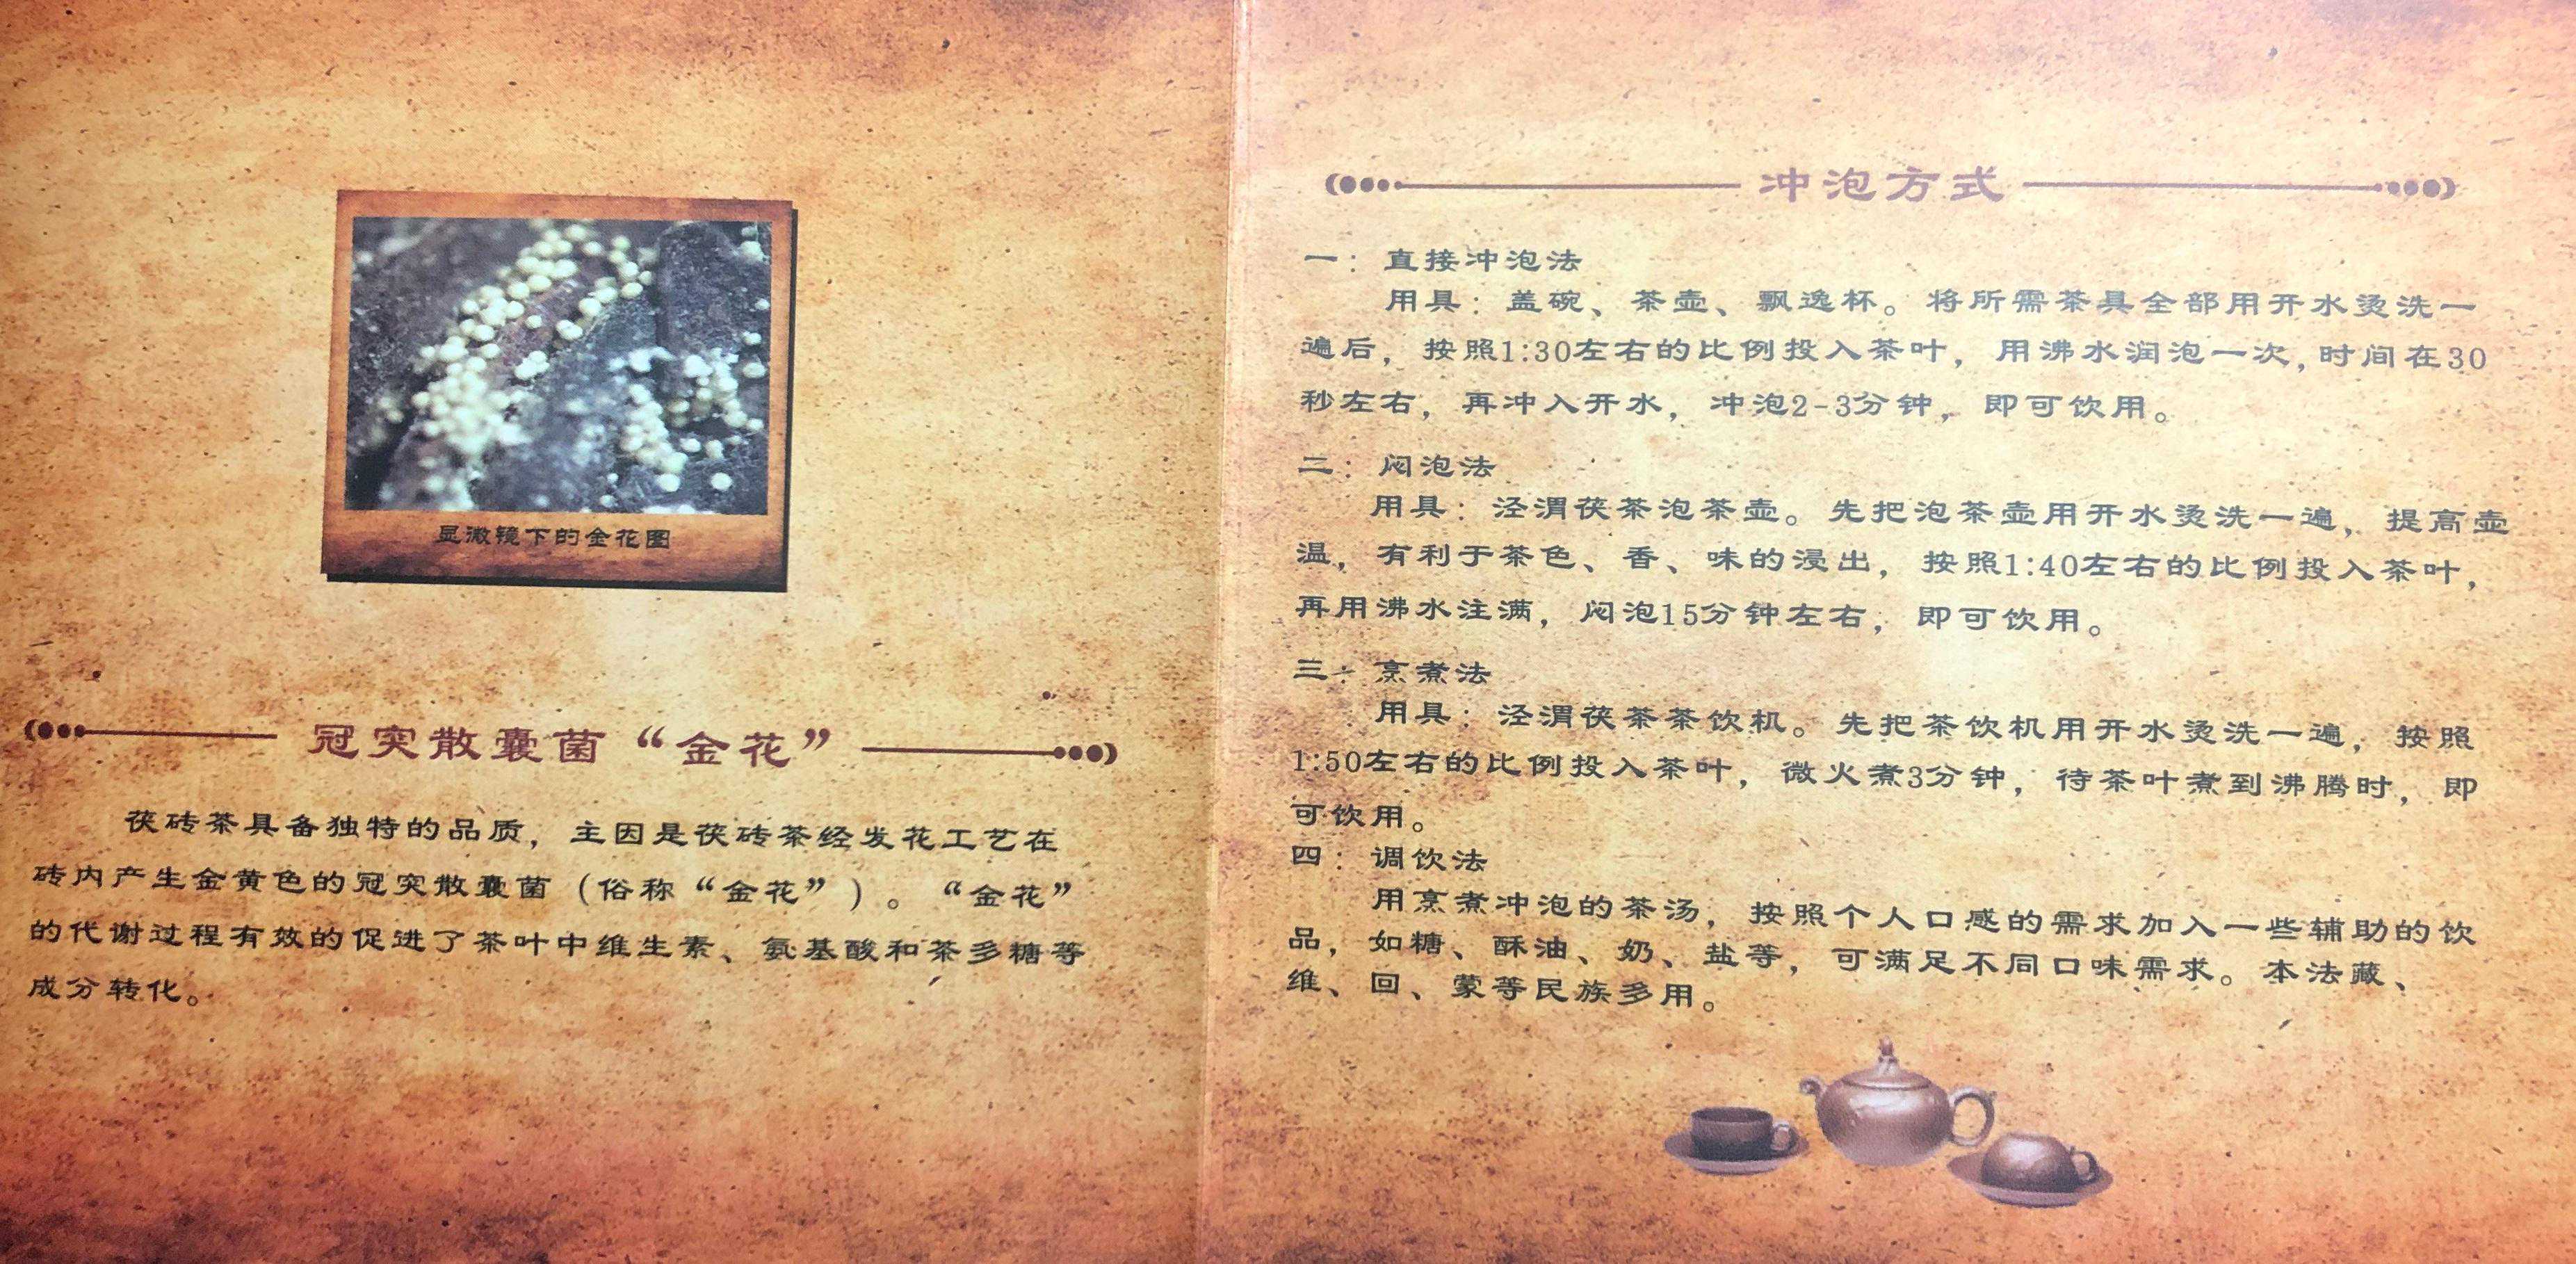 显微镜下的金花图
冠突散囊菌“金花”
茯砖茶具备独特的品质，主因是茯砖茶经发花工艺在
砖内产生金黄色的冠突散囊菌（俗称“金花”）。“金花”
的代谢过程有效的促进了茶叶中维生素、氨基酸和茶多糖等
成分转化。
冲泡方式
一：直接冲泡法
用具：盖碗、茶壶、飘逸杯。将所需茶具全部用开水烫洗一
遍后，按照1:30左右的比例投入茶叶，用沸水润泡一次,时间在30
秒左右，再冲入开水，冲泡2-3分钟，即可饮用。
二：闷泡法
用具：泾渭茯茶泡茶壶。先把泡茶壶用开水烫洗一遍，提高壶
温，有利于茶色、香、味的浸出，按照1:40左右的比例投入茶叶，
再用沸水注满，闷泡15分钟左右，即可饮用。
三：烹煮法
用具：泾渭茯茶茶饮机。先把茶饮机用开水烫洗一遍，按照
1:50左右的比例投入茶叶，微火煮3分钟，待茶叶煮到沸腾时，即
可饮用。
四：调饮法
用烹煮冲泡的茶汤，按照个人口感的需求加入一些辅助的饮
品，如糖、酥油、奶、盐等，可满足不同口味需求。本法藏、
维、回、蒙等民族多用。